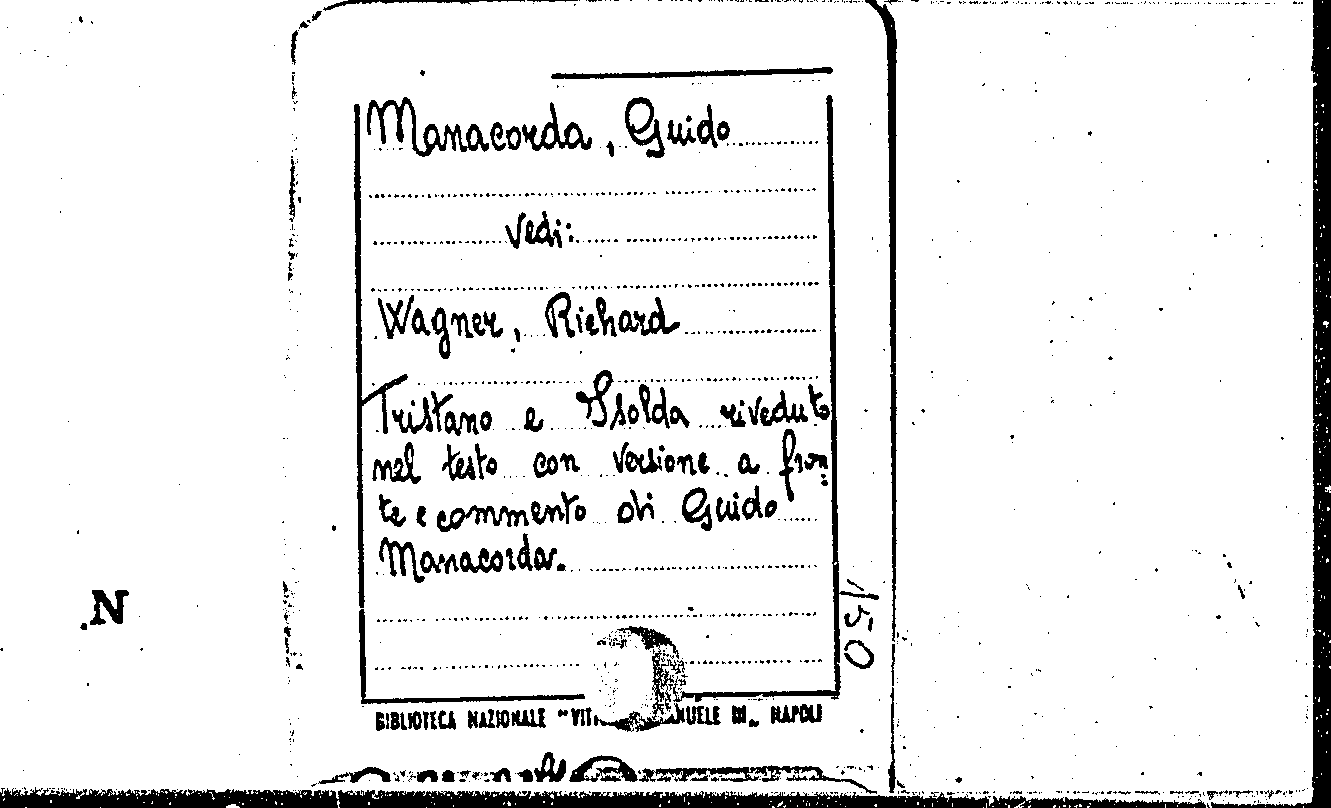 Manacorda, Guido
Vedi:
Wagner, Richard
Tristano e Isolda riveduto
nel testo con versione a fron=
te e commento di Guido
Manacorda.
150
.N
BIBLIOTECA NAZIONALE "VITT EMANUELE III„ NAPOLI